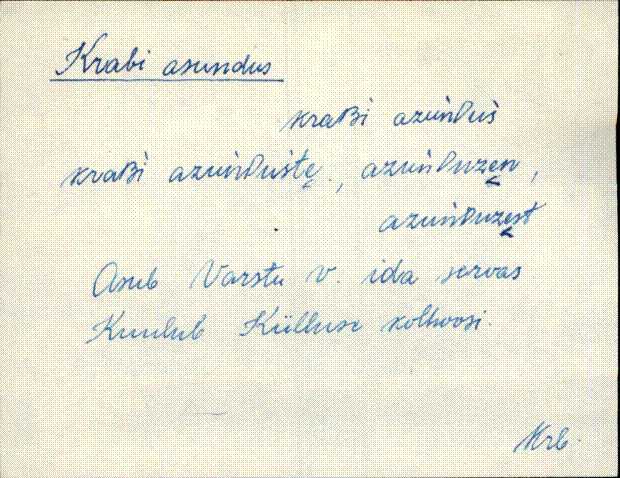 Krabi asundus
kraʙi azuńᴅuś
kraʙi azuńᴅuśtę, azuńᴅuzęn,
azuńᴅuzęst
Asub Varstu v. ida servas
Kuulub Külluse kolhoosi.
Krb.